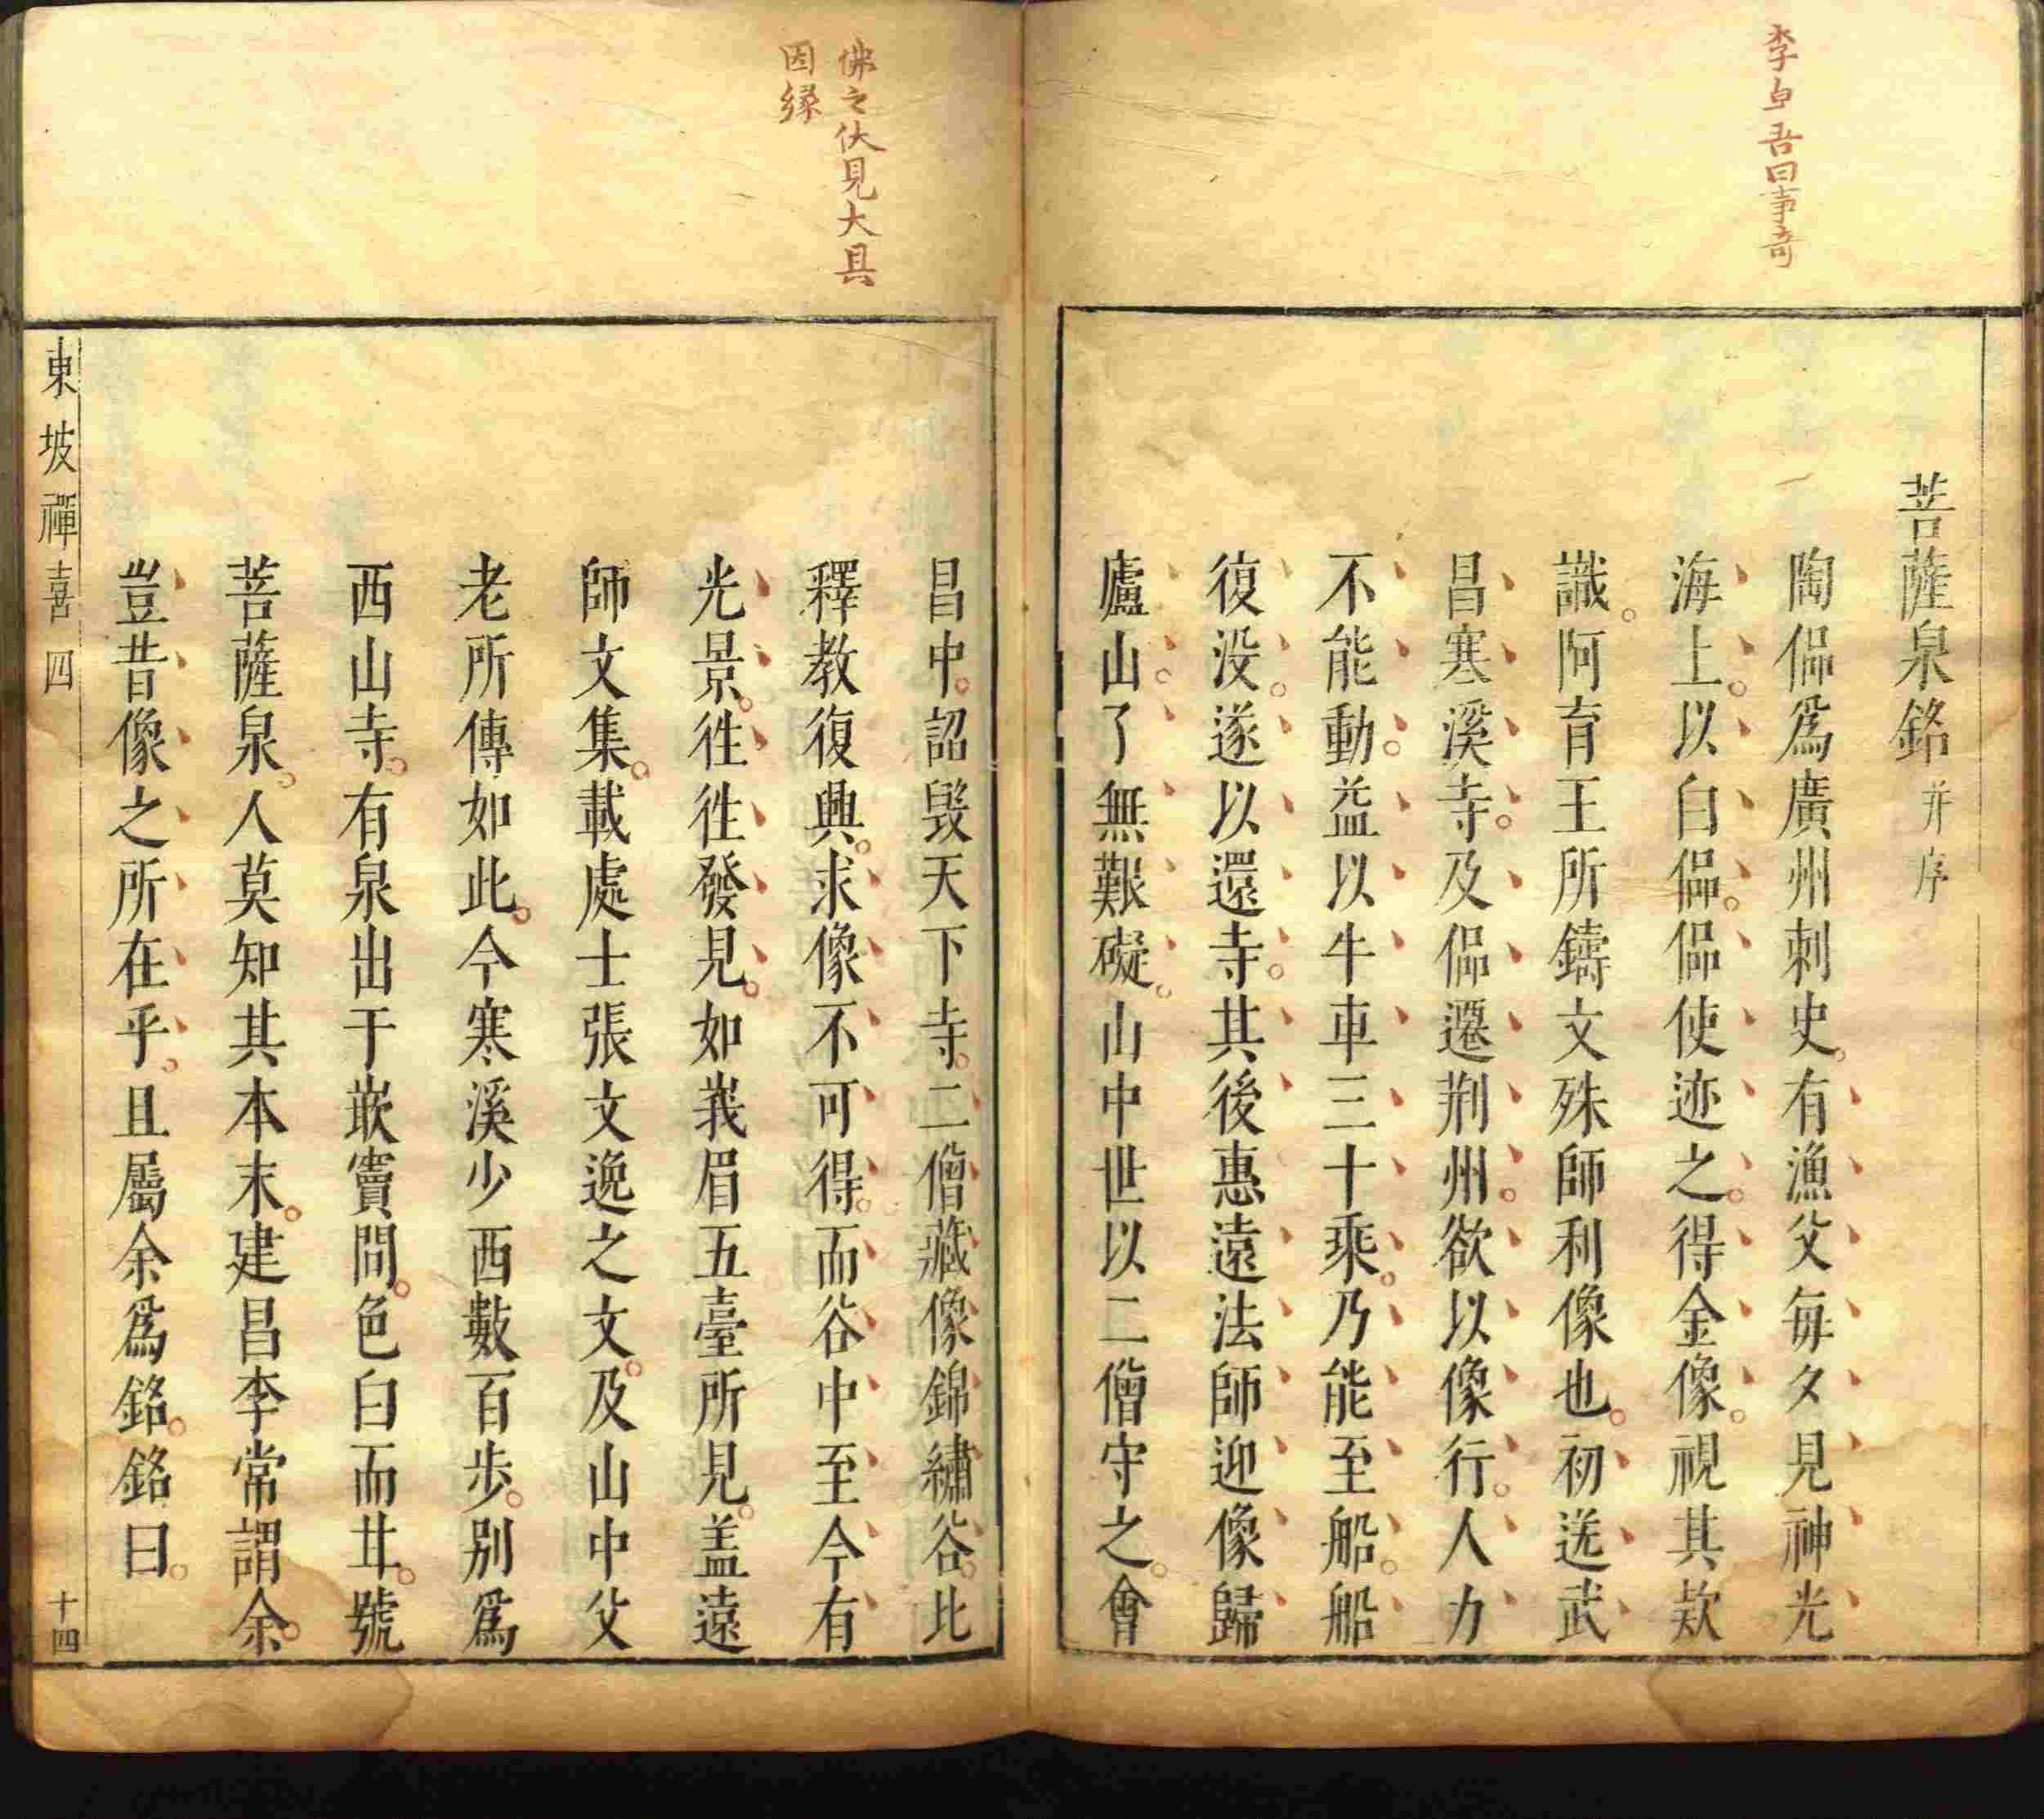 李卓吾曰事奇
菩薩泉銘并序
陶侃爲廣州刺史有漁父每夕見神光
海上以白侃侃使迹之得金像視其欵
識阿育王所鑄文殊師利像也初送武
昌寒溪寺及侃遷荆州欲以像行人力
不能動益以牛車三十乘乃能至船船
復没遂以還寺其後惠遠法師迎像歸
廬山了無艱礙山中世以二僧守之會
佛之伏見大具
因緣
昌中詔毀天下寺二僧藏像錦繡谷比
釋教復興求像不可得而谷中至今有
光景徃徃發見如峩眉五臺所見盖遠
師文集載處士張文逸之文及山中父
老所傳如此今寒溪少西數百步别爲
西山寺有泉出于嵌竇間色白而甘號
菩薩泉人莫知其本末建昌李常謂余
豈昔像之所在乎且屬余爲銘銘曰
東坡禪喜四
十四